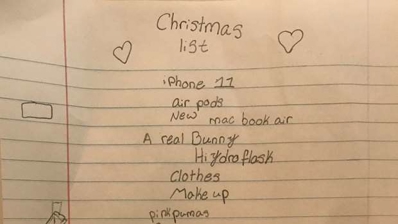 Christmas
list
iPhone 11
air pods
New mac book air
A real Bunny
Hiydroflask
Clothes
Make up
pinkpumas